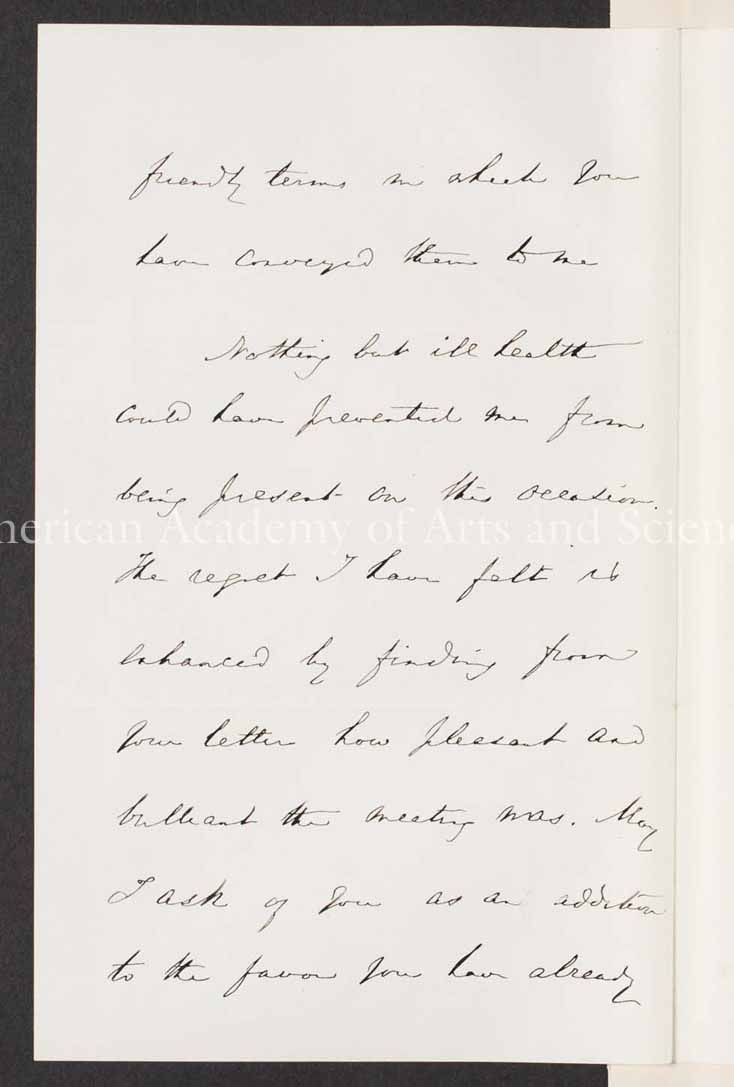 friendly terms in which you
have conveyed them to me
Nothing but ill health
could have prevented me from
being present on this occasion.
American Academy of Arts and Scienc
The regret I have felt is
enhanced by finding from
your letter how pleasant and
brilliant the meeting was. May
I ask of you as an addition
to the favor you have already